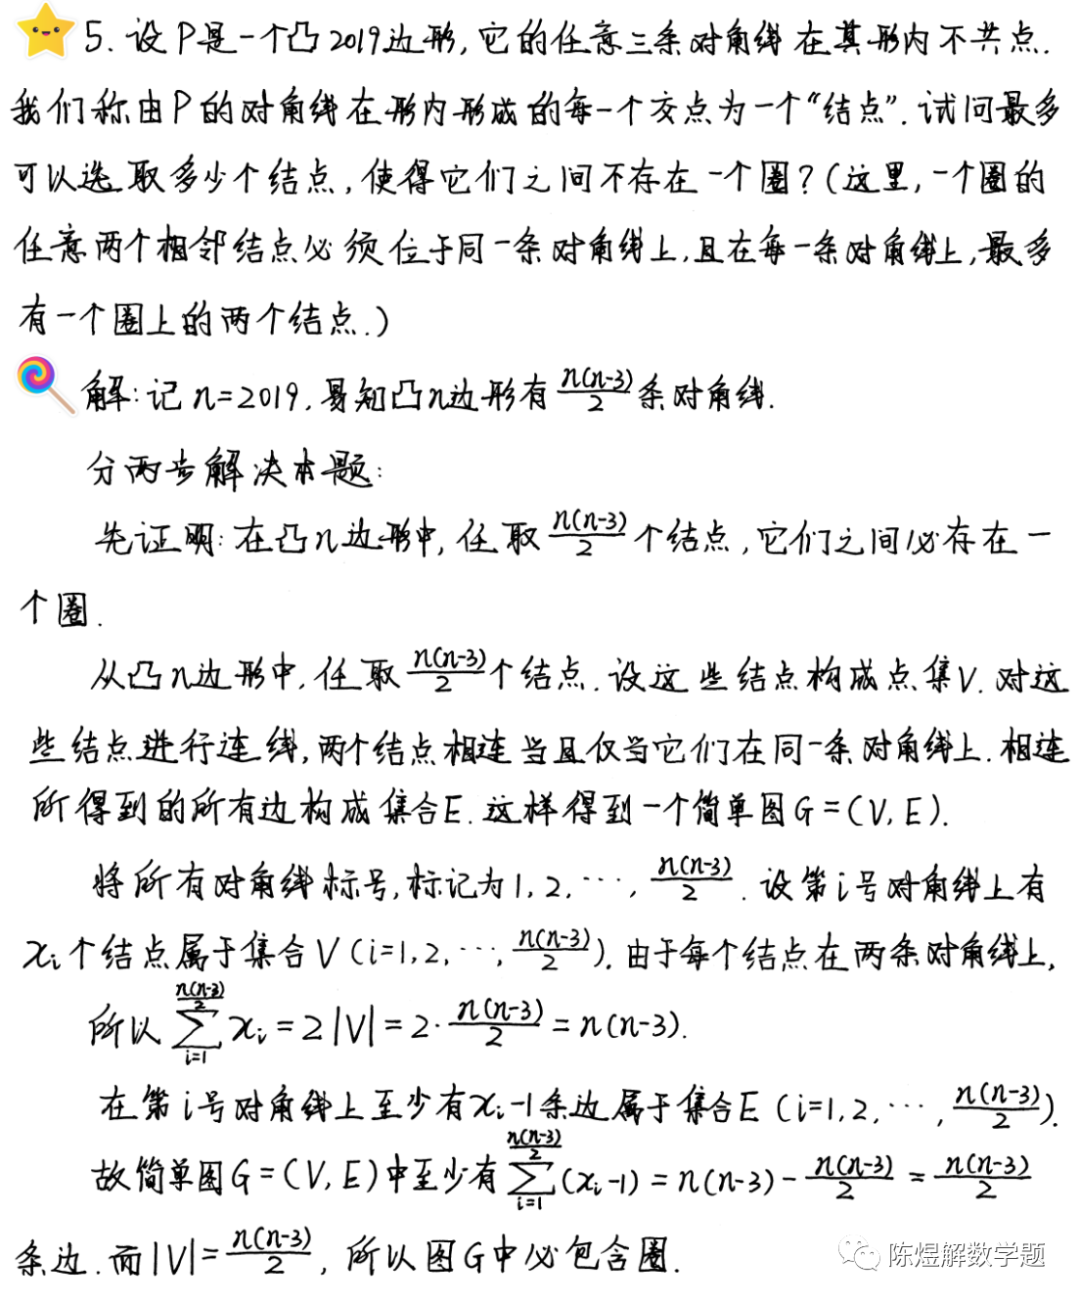 5. 设P是一个凸2019边形,它的任意三条对角线在其形内不共点.
我们称由P的对角线在形内形成的每一个交点为一个“结点”.试问最多
可以选取多少个结点,使得它们之间不存在一个圈?(这里,一个圈的
任意两个相邻结点必须位于同一条对角线上,且在每一条对角线上,最多
有一个圈上的两个结点.)
解:记n=2019.易知凸n边形有n(n-3)/2条对角线.
分两步解决本题:
先证明:在凸n边形中,任取n(n-3)/2个结点,它们之间必存在一
个圈.
从凸n边形中,任取n(n-3)/2个结点.设这些结点构成点集V.对这
些结点进行连线,两个结点相连当且仅当它们在同一条对角线上.相连
所得到的所有边构成集合E.这样得到一个简单图G=(V,E).
将所有对角线标号,标记为1,2,…,n(n-3)/2.设第i号对角线上有
xᵢ个结点属于集合V(i=1,2,…,n(n-3)/2).由于每个结点在两条对角线上,
所以∑_{i=1}^{n(n-3)/2} xᵢ=2|V|=2·n(n-3)/2=n(n-3).
在第i号对角线上至少有xᵢ-1条边属于集合E(i=1,2,…,n(n-3)/2).
故简单图G=(V,E)中至少有∑_{i=1}^{n(n-3)/2}(xᵢ-1)=n(n-3)-n(n-3)/2=n(n-3)/2
条边.而|V|=n(n-3)/2,所以图G中必包含圈.
陈煜解数学题